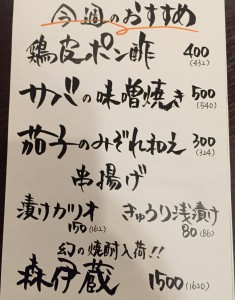 今週のおすすめ
鶏皮ポン酢 400(432)
サバの味噌焼き 500(540)
茄子のみぞれ和え 300(324)
串揚げ
漬けカツオ 150(162) きゅうり浅漬け 80(86)
幻の焼酎入荷!!
森伊蔵 1500(1620)